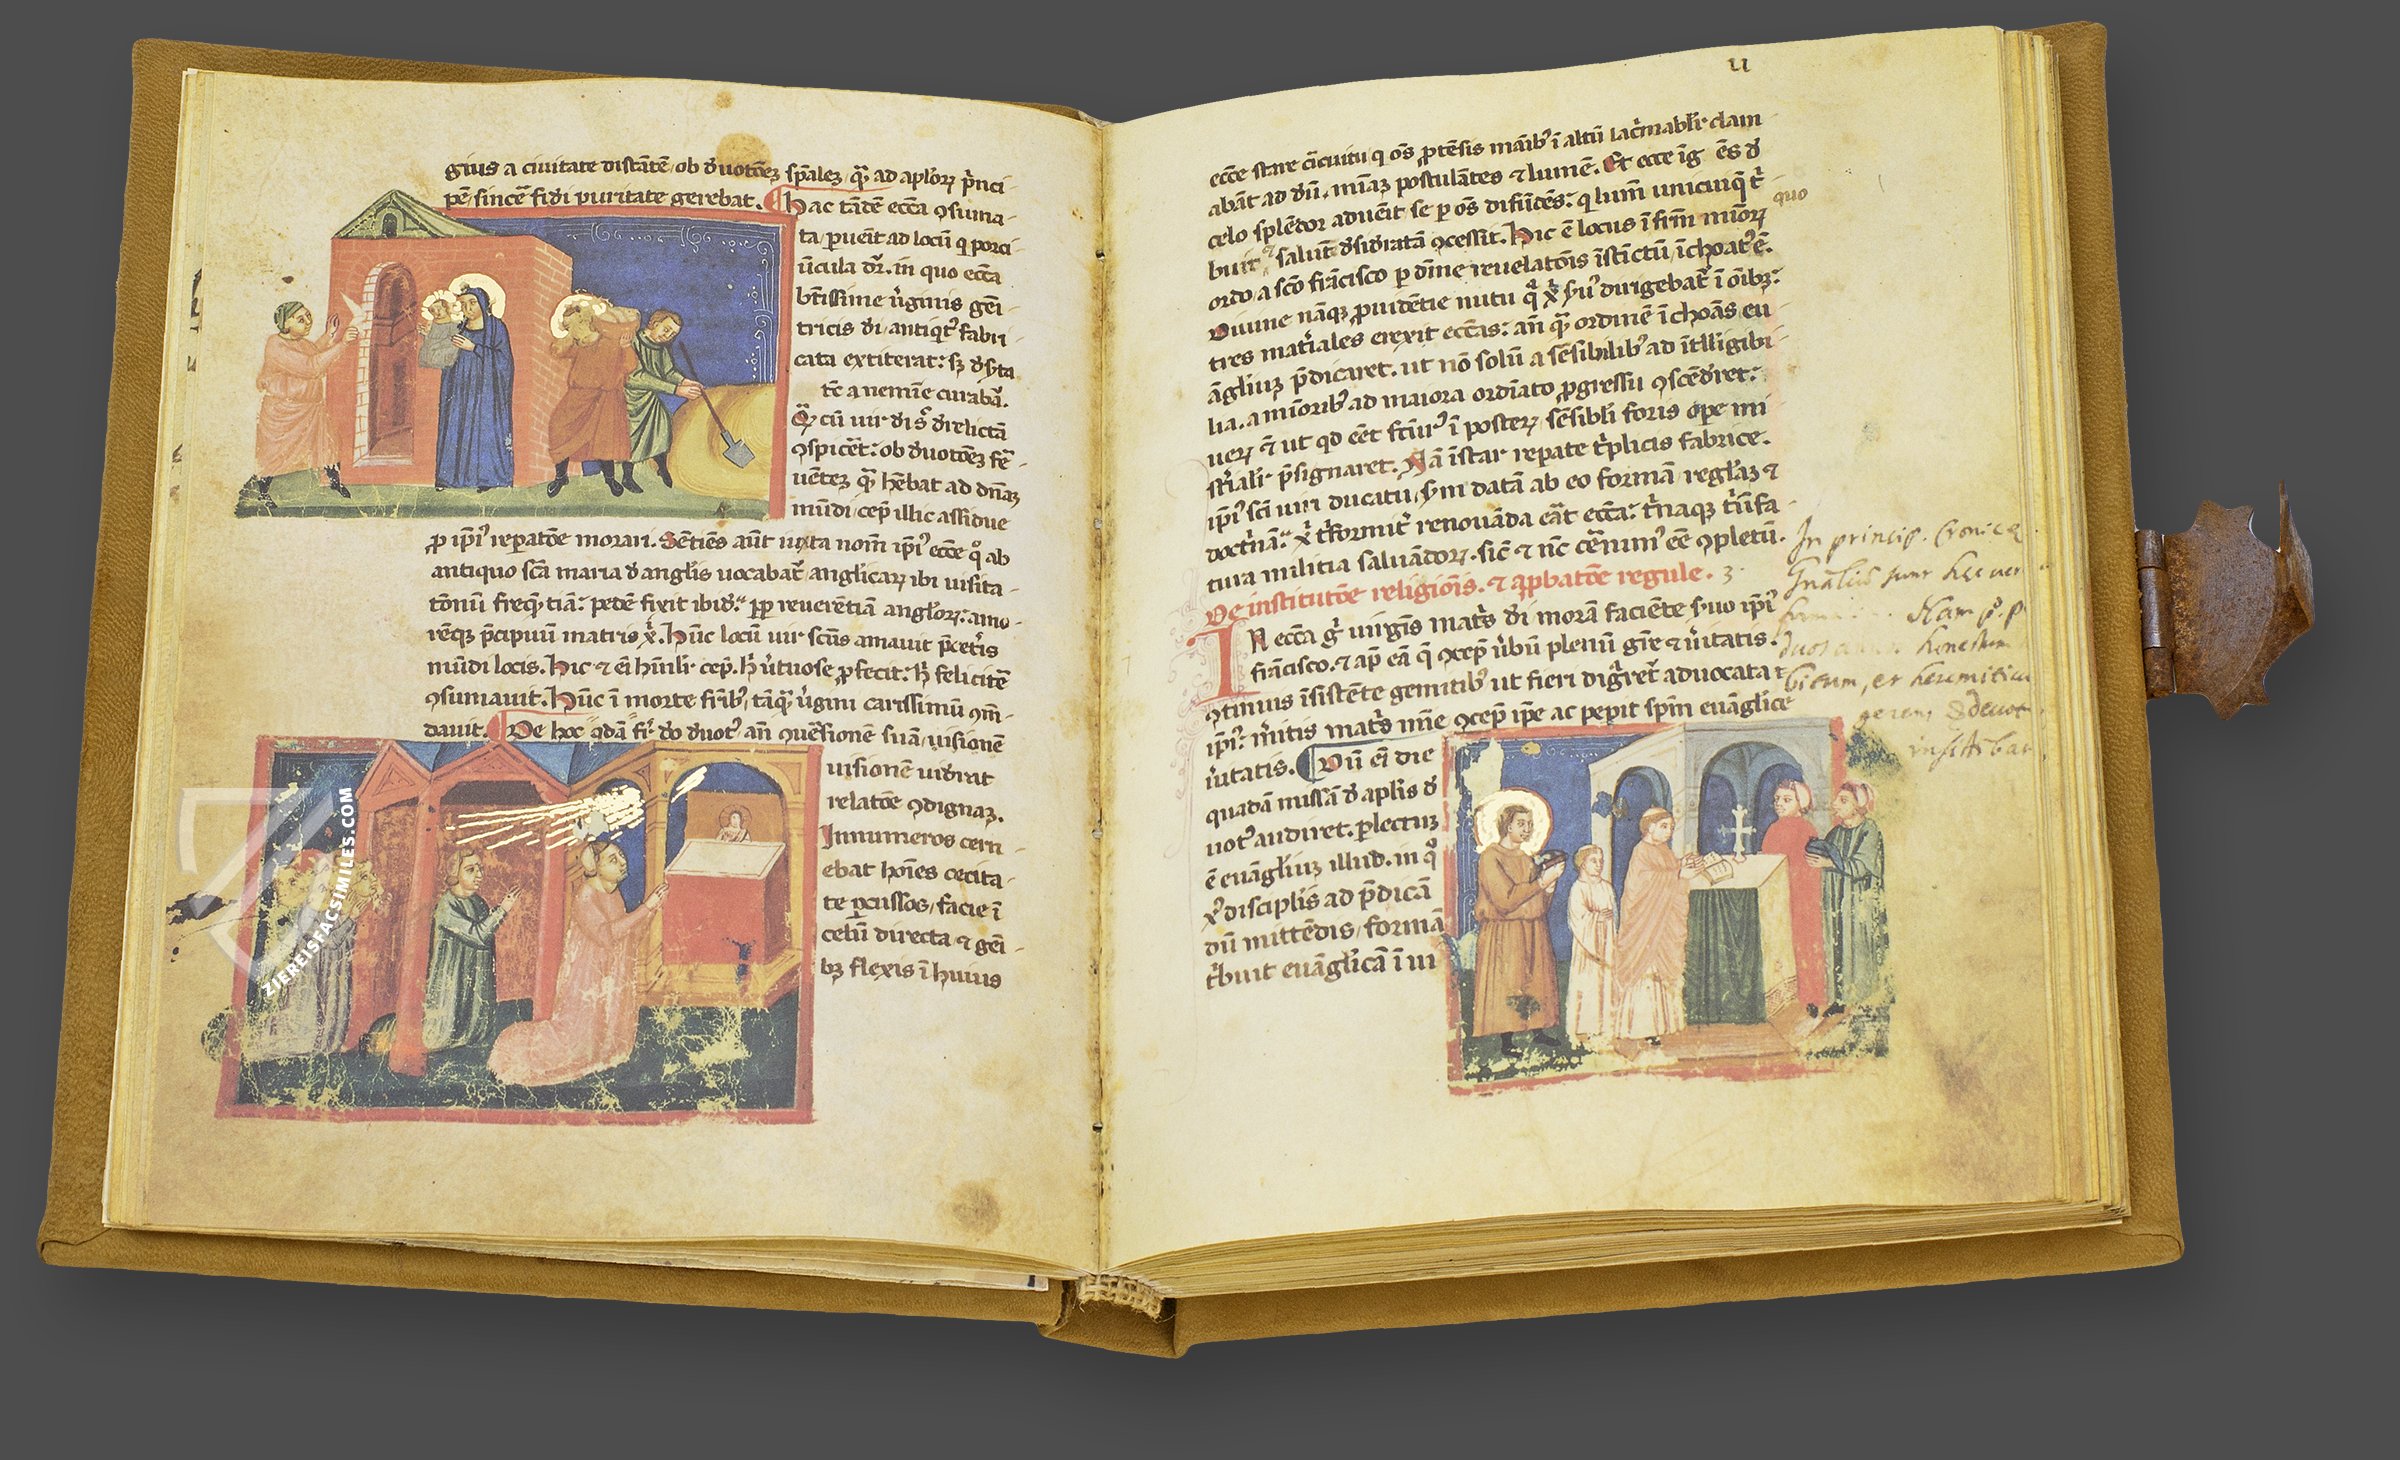 gius a ciuitate distātē / ob deuotōeȝ spālēȝ / qȝ ad aplōꝝ p̄nci-
pē / sincē fidi puritate gerebat. Hac tādē ecc̄a ꝯsuma-
ta / ꝑuēit ad locū q porci-
ūcula dr̄. in quo ecc̄a
btīssime ūginis gēi-
tricis di / antiqt' fabri-
cata extiterat: sȝ dsta
tē a nemīe curabāt.
Qȝ cū uir di s̄ derelictā
ꝯspicēt: ob deuotōeȝ fē-
uētēȝ qȝ hēbat ad dn̄aȝ
mūdi / cep̄ illic assidue
ꝓ ip̄i' reꝑatōe morari. Sētiēs aūt iuxta nom̄ ip̄i' ecc̄e q° ab
antiquo scā maria d anglīs uocabat̄ / anglicaꝝ ibi uisita-
tōnū freqn̄tiā: pedē fixit ibid'. ꝑꝑ reuerētiā angloꝝ: amo-
rēqȝ p̄cipuū matris xi. Hūc locū uir scūs amauit p̄cetis
mūdi locis. Hic ⁊ ei hūilr cep̄. h ūtuose ꝓfecit: h felicitē
ꝯsumauit. Hūc ī morte frīb' / tāqȝ ūgini carissimū ꝯm̄-
dauit. De hoc qdā fr̄ do deuot' an̄ ꝯūsionē suā / uisionē
uisionē uiderat
relatōe ꝯdignaȝ.
Innumeros cern-
ebat hoīes cecita-
te ꝑcussos / facie ī
celū directa ⁊ gēi-
bȝ flexis ī huius
u
ecc̄e stare cīcuitu / q oēs ꝓtēsis māib' ī altū lac̄mabilr clam
abāt ad dū. mīaȝ postulātes ⁊ lumē. Et ecce īg ēs d
celo splēdor aduēit se ꝑ oēs difūdēs: q lum̄ unicuiqȝ t'
quo
buit ⁊ salutē dsidratā ꝯcessit. Hic ē locus ī quo frm̄ mīoꝝ
ordo a scō frācisco ꝑ diūne reuelatōis īstīctū / īchoat' ē.
Diuine nāqȝ ꝓuidētie nutu qȝ xi s̄uū dirigebat̄ ī oībȝ:
tres mat'iales erexit ecc̄as: an̄ qȝ ordinē īchoās / eu
āgliuȝ p̄dicaret. ut nō solū a sēsibilib' ad ītlligibi-
lia. a mīorib' ad maiora ordīato ꝓgressu ꝯscēderet:
ueꝝ ⁊ ut qd eēt fctūr' ī posteꝝ / sēsibli foris ope mi
st'ialr p̄signaret. Nā īstar reꝑate t'plicis fabrice.
ip̄i' scī uiri ducatu / s̄m datā ab eo formā / reglāȝ ⁊
doct'nā. xi t'formit' renouāda eāt ecc̄a: t'naqȝ t'ūfa-
tura militia saluādoꝝ. sic̄ ⁊ nc̄ cēnim' eē ꝯpletū.
De institutōe religiōis. ⁊ apꝓbatōe regule. 3.
IN ecc̄a g' uirgīs mat's di morā faciēte s̄uo ip̄i'
frācisco. ⁊ ap̄ eā q ꝯcep̄ ūbū plenū gr̄e ⁊ ūitatis.
ꝯtinuis īsistēte gemitib' ut fieri digret' aduocata
ip̄i': m̄itis mat's mīe ꝯcep̄ ip̄e ac peꝑit spm̄ euāglice
ūitatis. Dū ei die
quadā missā d aplīs d
uot' audiret. ꝑlectuȝ
ē euāgliuȝ illud. in q°
x' disciplīs ad p̄dicā
dū mittēdis / formā
t'buit euāglicā ī ui
In princip. Cronica
Gnalis sunt hec ver
Nam
bitum, et heremiticu
gerens & deuot
insistebat
ZIEREISFACSIMILES.COM